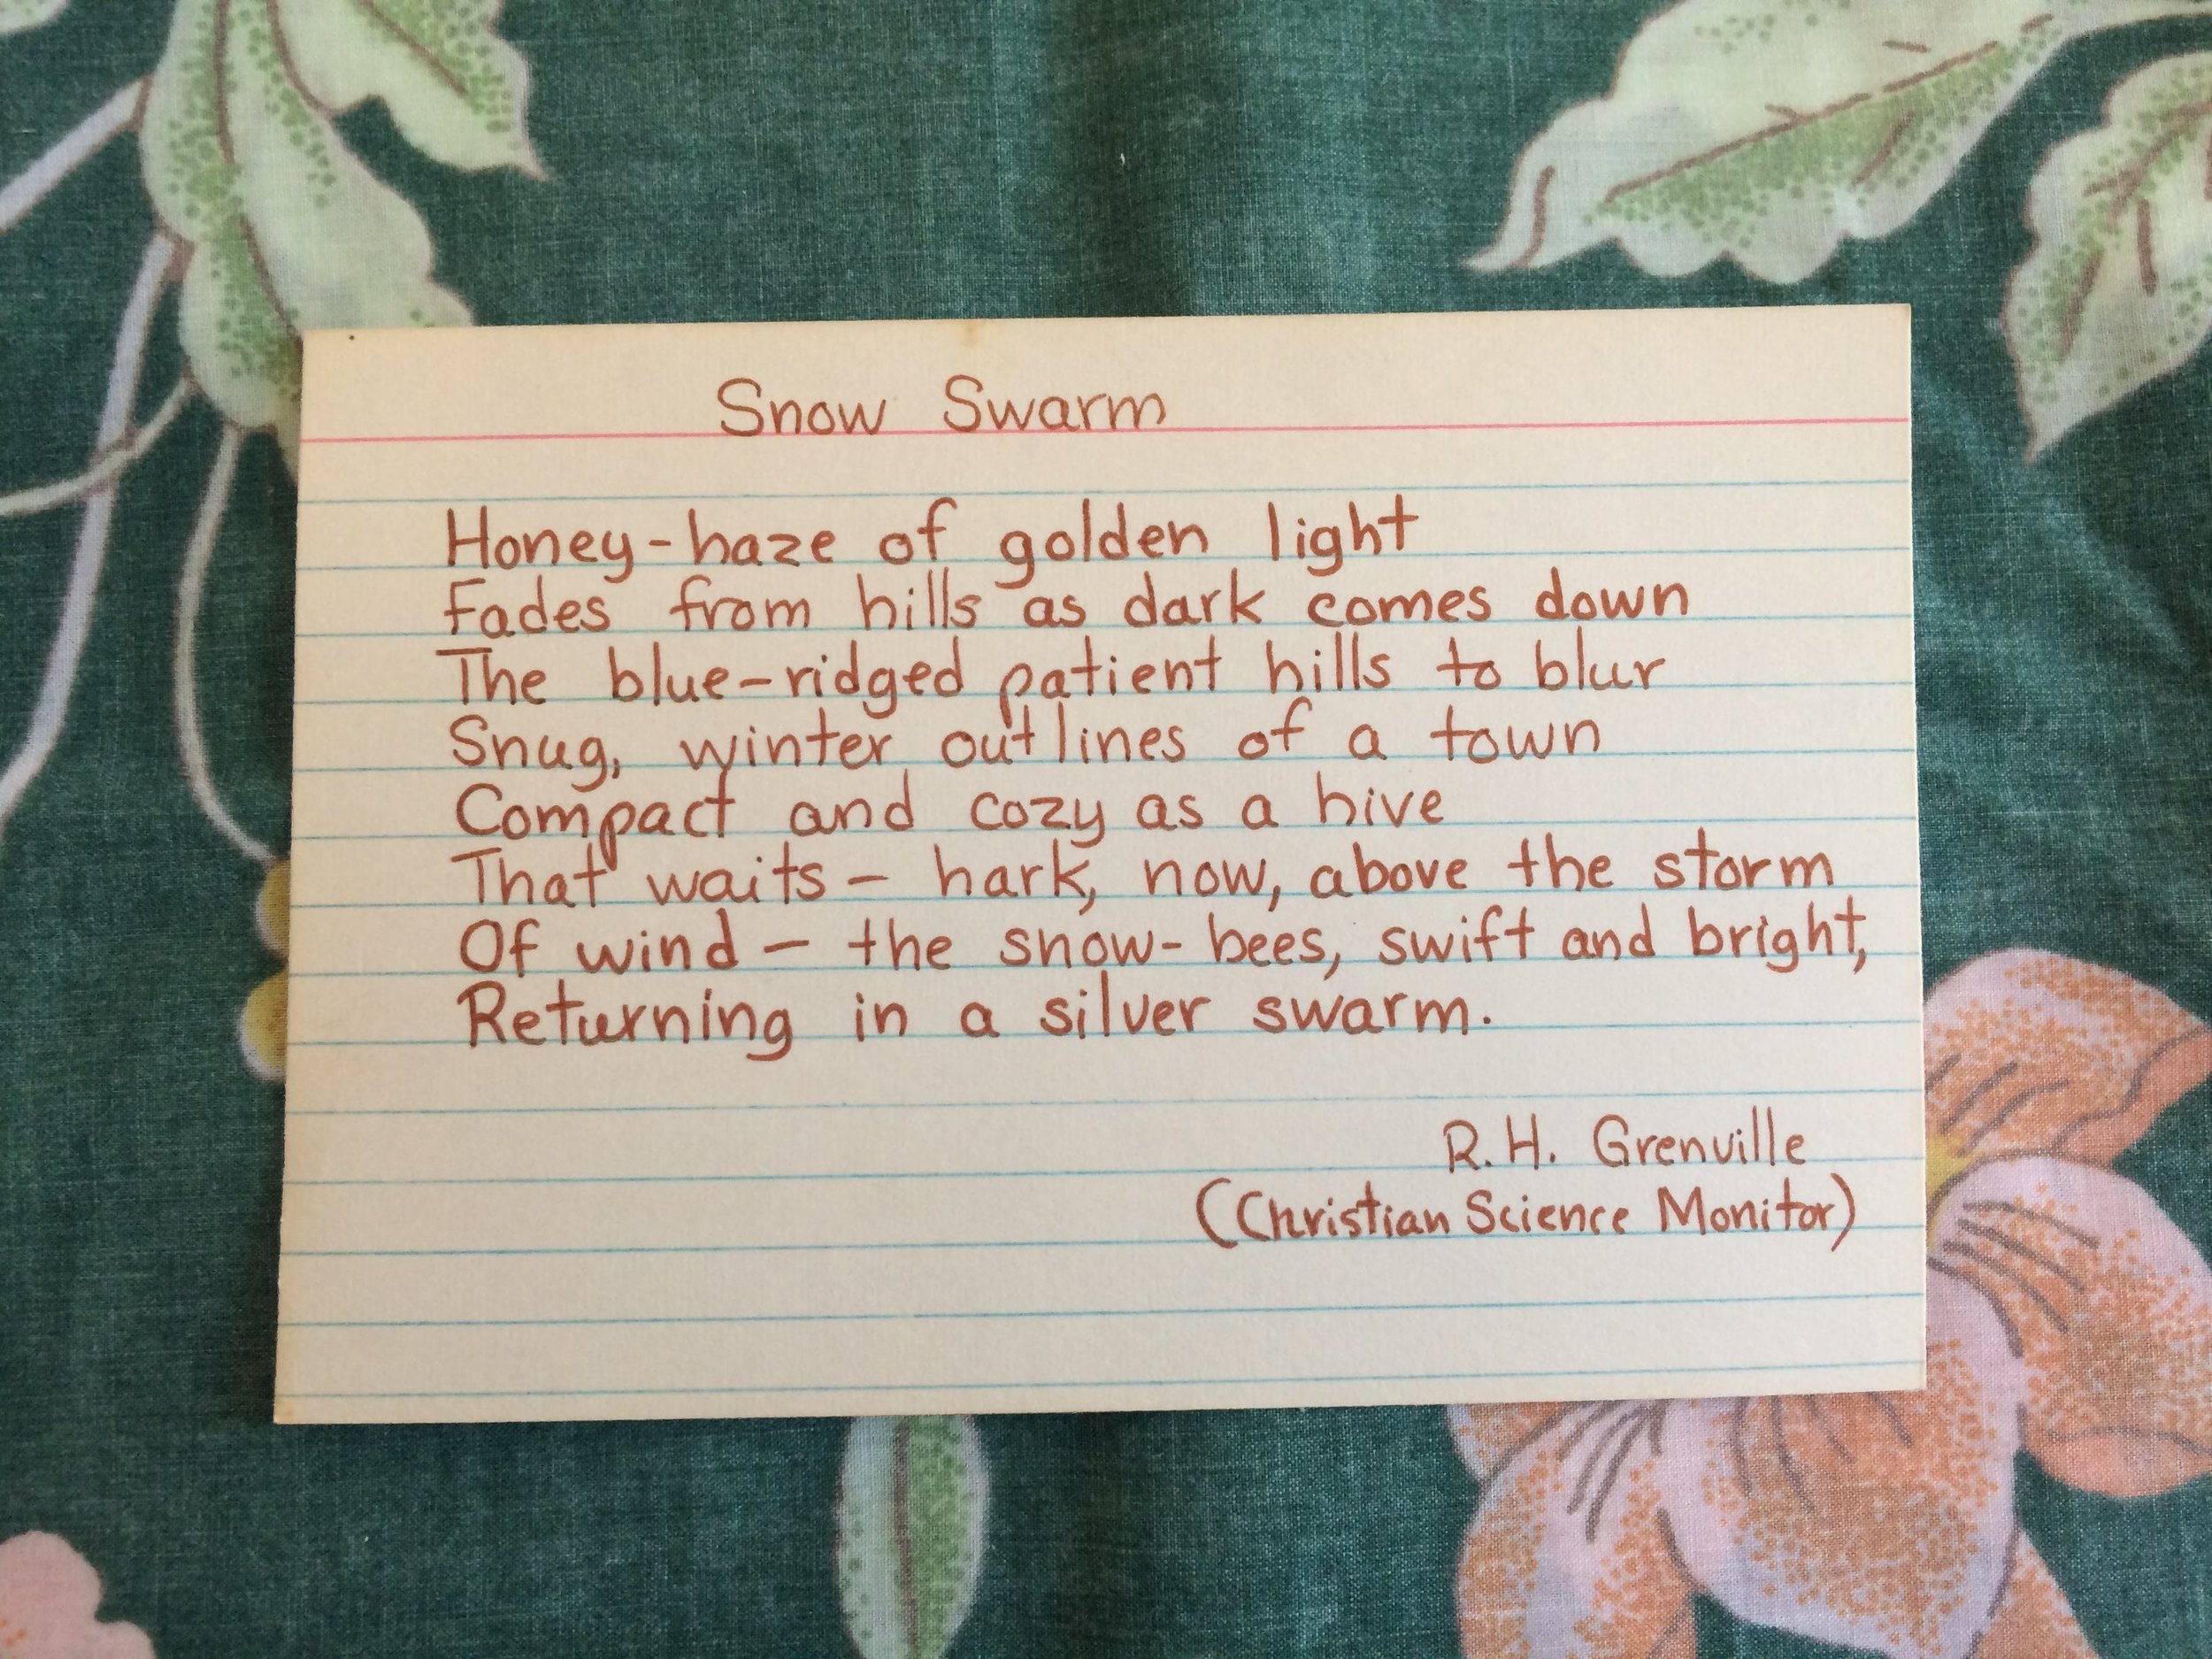 Snow Swarm
Honey-haze of golden light
Fades from hills as dark comes down
The blue-ridged patient hills to blur
Snug, winter outlines of a town
Compact and cozy as a hive
That waits - hark, now, above the storm
Of wind - the snow-bees, swift and bright,
Returning in a silver swarm.
R.H. Grenville
(Christian Science Monitor)